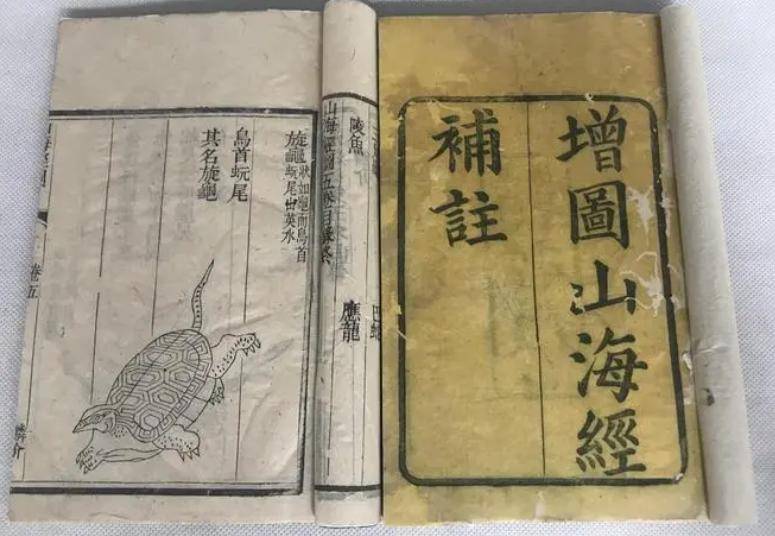 增圖山海經
補註
陵魚
應龍
山海經圖五卷目錄終
旋龜狀如龜而鳥首
虺尾出英水
鳥首虺尾
其名旋龜
卷五
鱗介